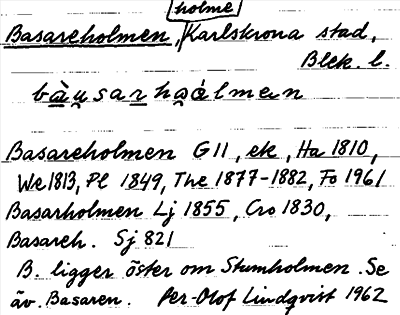 holme
Basareholmen, Karlskrona stad,
Blek. l.
bàu̯sarhɷ̨álmen
Basareholmen G11, ek, Ha 1810,
We 1813, Pl 1849, The 1877-1882, Fo 1961
Basarholmen Lj 1855, Cro 1830,
Basareh. Sj 821
B. ligger öster om Stumholmen. Se
äv. Basaren. Per-Olof Lindqvist 1962